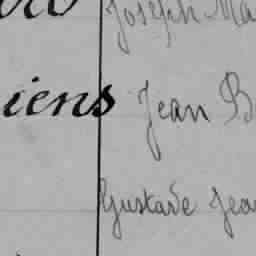 Joseph Ma
iens Jean B
Gustave Jea